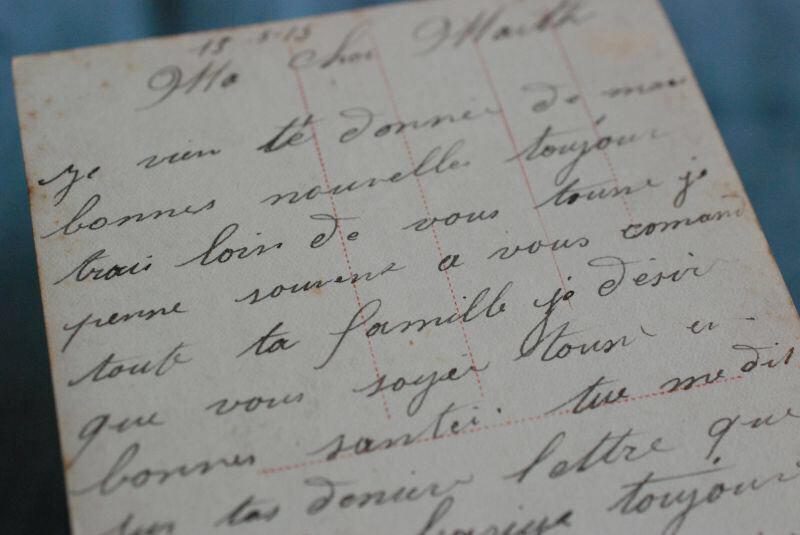 13-5-13
Ma cher Marth
Je vien te donner de mes
bonnes nouvelles toujour
trais loin de vous tousse je
pense souvent a vous comand
toute ta famille je désir
que vous soyer tousse en
bonnes santer. tue me dit
sur tas denière lettre que
toujour